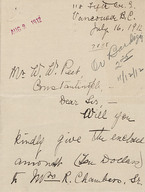 110 Sixth Av. S.
Vancouver B.C.
July 16, 1912
AUG 9 1912
Mr. W. W. Peet,
Constantinople,
Dear Sir,—
Will you
kindly give the enclosed
amount (Ten Dollars)
to Mrs R. Chambers, Sr.